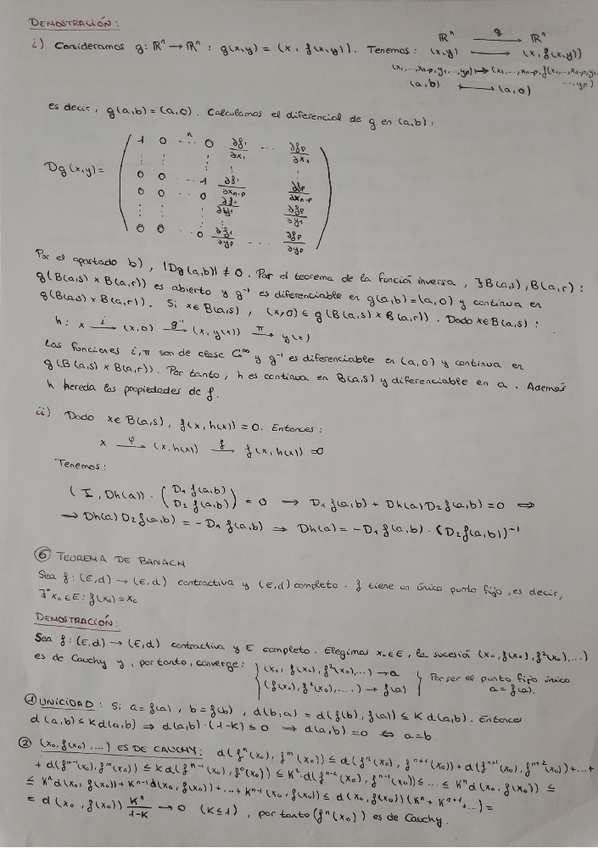 DEMOSTRACIÓN:
i) Consideramos g: ℝⁿ → ℝⁿ : g(x,y) = (x, f(x,y)). Tenemos:
ℝⁿ —g→ ℝⁿ
(x,y) ⟶ (x, f(x,y))
(x₁,...,xₙ₋ₚ,y₁,...,yₚ) ↦ (x₁,...,xₙ₋ₚ, f(x₁,...,xₙ₋ₚ,y₁,
...,yₚ)
(a,b) ⟼ (a,0)
es decir, g(a,b) = (a,0). Calculamos el diferencial de g en (a,b):
n
1 0 ... 0 ∂f₁/∂x₁ ... ∂fₚ/∂x₁
Dg(x,y) =
0 0 ... 1 ∂f₁/∂xₙ₋ₚ ∂fₚ/∂xₙ₋ₚ
0 0 ... 0 ∂f₁/∂y₁ ∂fₚ/∂y₁
0 0 ... 0 ∂f₁/∂yₚ ... ∂fₚ/∂yₚ
Por el apartado b), |Dg(a,b)| ≠ 0. Por el teorema de la función inversa, ∃B(a,s), B(a,r) :
g(B(a,s) × B(a,r)) es abierto y g⁻¹ es diferenciable en g(a,b) = (a,0) y continua en
g(B(a,s) × B(a,r)). Si x∈B(a,s), (x,0) ∈ g(B(a,s) × B(a,r)). Dado x∈B(a,s) :
h: x —i→ (x,0) —g⁻¹→ (x, y(x)) —π→ y(x)
Las funciones i, π son de clase C^∞ y g⁻¹ es diferenciable en (a,0) y continua en
g(B(a,s) × B(a,r)). Por tanto, h es continua en B(a,s) y diferenciable en a. Además
h hereda las propiedades de f.
ii) Dado x∈B(a,s), f(x,h(x)) = 0. Entonces:
x —φ→ (x,h(x)) —f→ f(x,h(x)) = 0
Tenemos:
(I, Dh(a)) · (D₁f(a,b) D₂f(a,b)) = 0 → D₁f(a,b) + Dh(a)D₂f(a,b) = 0 ⇒
→ Dh(a)D₂f(a,b) = -D₁f(a,b) ⇒ Dh(a) = -D₁f(a,b) · (D₂f(a,b))⁻¹
⑥ TEOREMA DE BANACH
Sea f: (E,d) → (E,d) contractiva y (E,d) completo. f tiene un único punto fijo, es decir,
∃* x₀∈E: f(x₀) = x₀
DEMOSTRACIÓN:
Sea f: (E,d) → (E,d) contractiva y E completo. Elegimos x₀∈E, la sucesión (x₀, f(x₀), f²(x₀),...)
es de Cauchy y, por tanto, converge: { (x₀, f(x₀), f²(x₀),...) → a
(f(x₀), f²(x₀), ...) → f(a) } Por ser el punto fijo único
a = f(a).
① UNICIDAD: Si a = f(a), b = f(b), d(b,a) = d(f(b), f(a)) ≤ K d(a,b). Entonces
d(a,b) ≤ K d(a,b) ⇒ d(a,b)·(1-K) ≤ 0 → d(a,b) = 0 ⇔ a = b.
② (x₀, f(x₀),...) ES DE CAUCHY: d(fⁿ(x₀), fᵐ(x₀)) ≤ d(fⁿ(x₀), fⁿ⁺¹(x₀)) + d(fⁿ⁺¹(x₀), fⁿ⁺²(x₀)) + ... +
+ d(fᵐ⁻¹(x₀), fᵐ(x₀)) ≤ K d(fⁿ⁻¹(x₀), fⁿ(x₀)) ≤ K² d(fⁿ⁻²(x₀), fⁿ⁻¹(x₀)) ≤ ... ≤ Kⁿ d(x₀, f(x₀)) ≤
≤ Kⁿ d(x₀, f(x₀)) + Kⁿ⁺¹ d(x₀, f(x₀)) + ... + Kᵐ⁻¹(x₀, f(x₀)) ≤ d(x₀, f(x₀)) (Kⁿ + Kⁿ⁺¹ + ...) =
= d(x₀, f(x₀)) Kⁿ/1-K → 0 (K≤1), por tanto (fⁿ(x₀)) es de Cauchy.